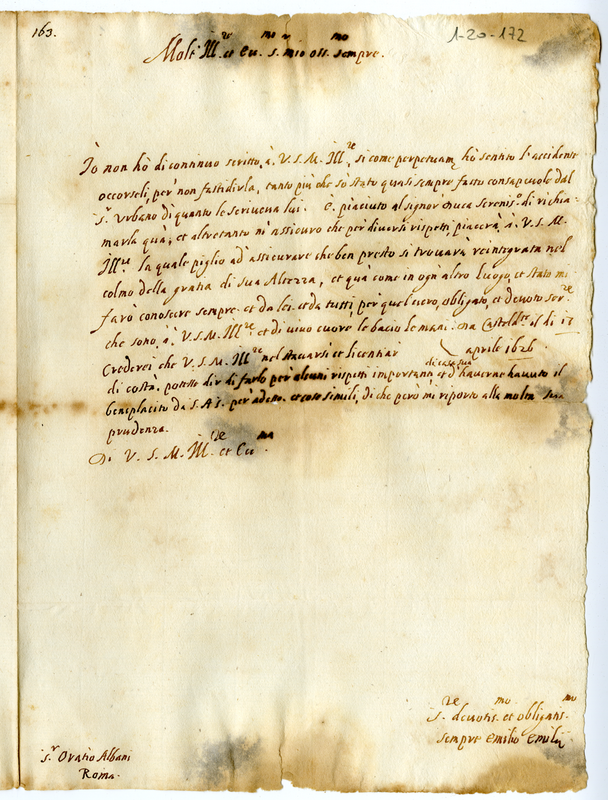 163.
1-20-172
Molt' Ill.re et Ecc.mo s.r mio oss.mo sempre.
Io non hò di continuo scritto, à V. S. M. Ill.re, si come perpetuam.te hò sentito l'accidente
occorseli, per non fastidirla, tanto più che sò stato quasi sempre fatto consapevole dal
s.r Urbano di quanto le scriveva lui. E piaciuto al signor Duca Sereniss.o di richia-
marla quà, et altretanto m'assicuro che per diversi rispetti, piacerà, à V. S. M.
Ill.re la quale piglio ad' assicurare che ben presto si trovarà reintegrata nel
colmo della gratia di sua Altezza, et quà come in ogn' altro luogo, et stato mi
farò conoscere sempre et da lei, et da tutti, per quel vero, obligato, et devoto ser.re
che sono, à, V. S. M. Ill.re et di vivo cuore le bacio le mani. Da Casteld.te il di 17
aprile 1626
Crederei che V. S. M. Ill.re nel staccarsi et licentiar
di casa sua
di costà, potesse dir di farlo per alcuni rispetti importanti, et d'haverne havuto il
beneplacito da S. A. S. per adesso, et cose simili, di che però mi riporto alla molta sua
prudenza.
Di V. S. M. Ill.re et Ecc.ma
s.re devotis.mo et obligatis.mo
sempre Emilio Emilii
s.r Oratio Albani
Roma.